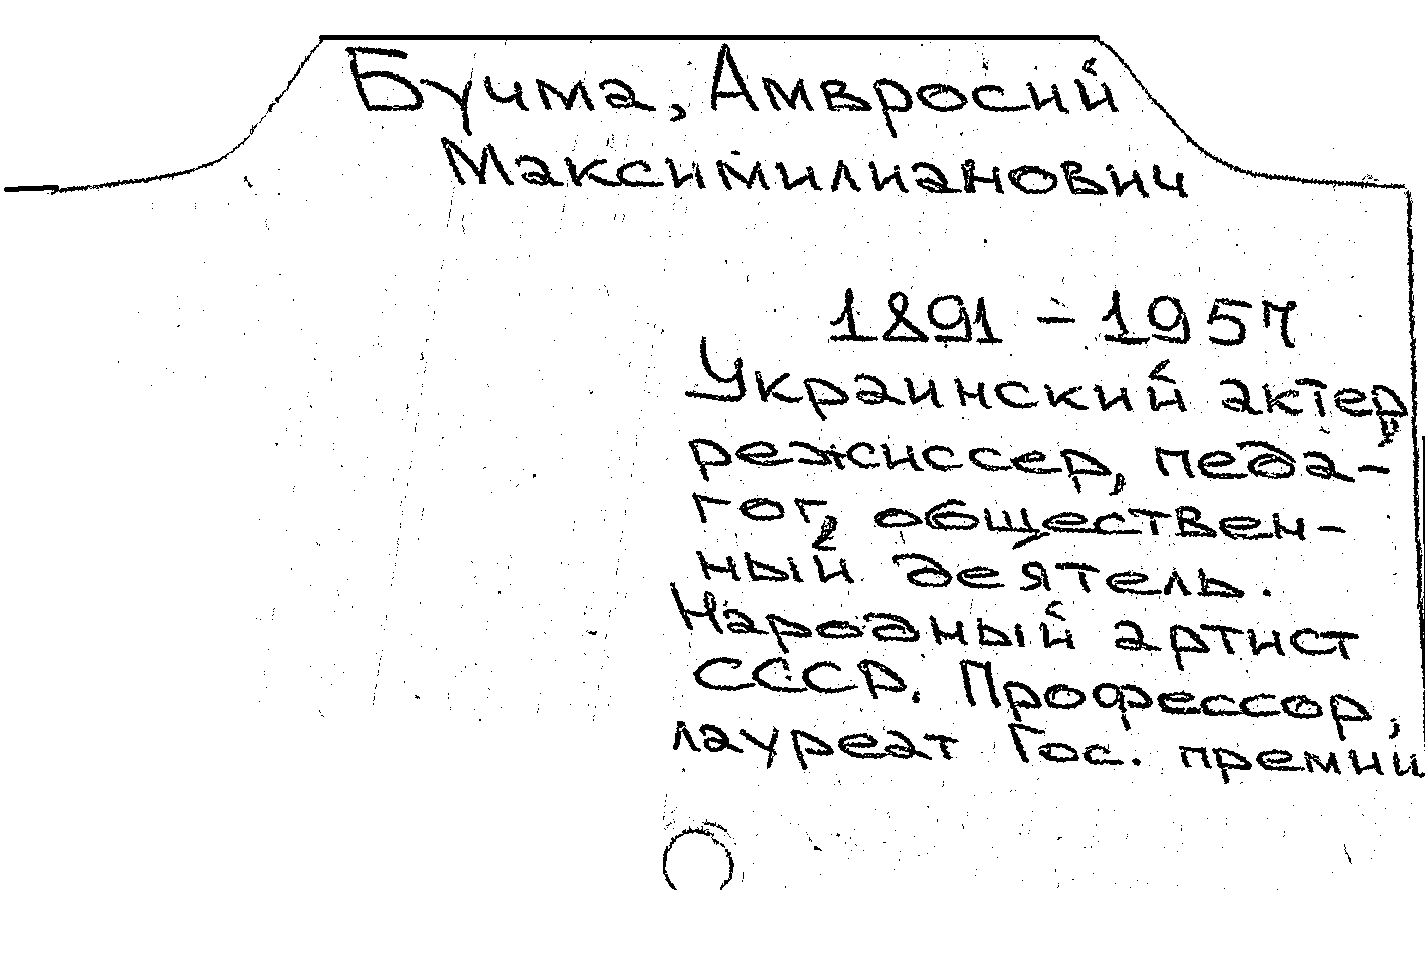 Бучма, Амвросий
Максимилианович
1891 - 1957
Украинский актер,
режиссер, педа-
гог, обществен-
ный деятель.
Народный артист
СССР. Профессор,
лауреат Гос. премии